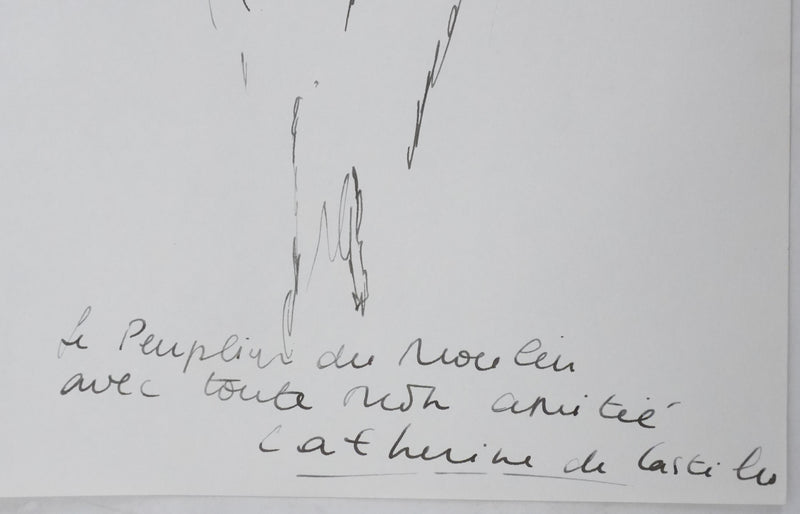 Le Peuplier du Moulin
avec toute mon amitié
Catherine de